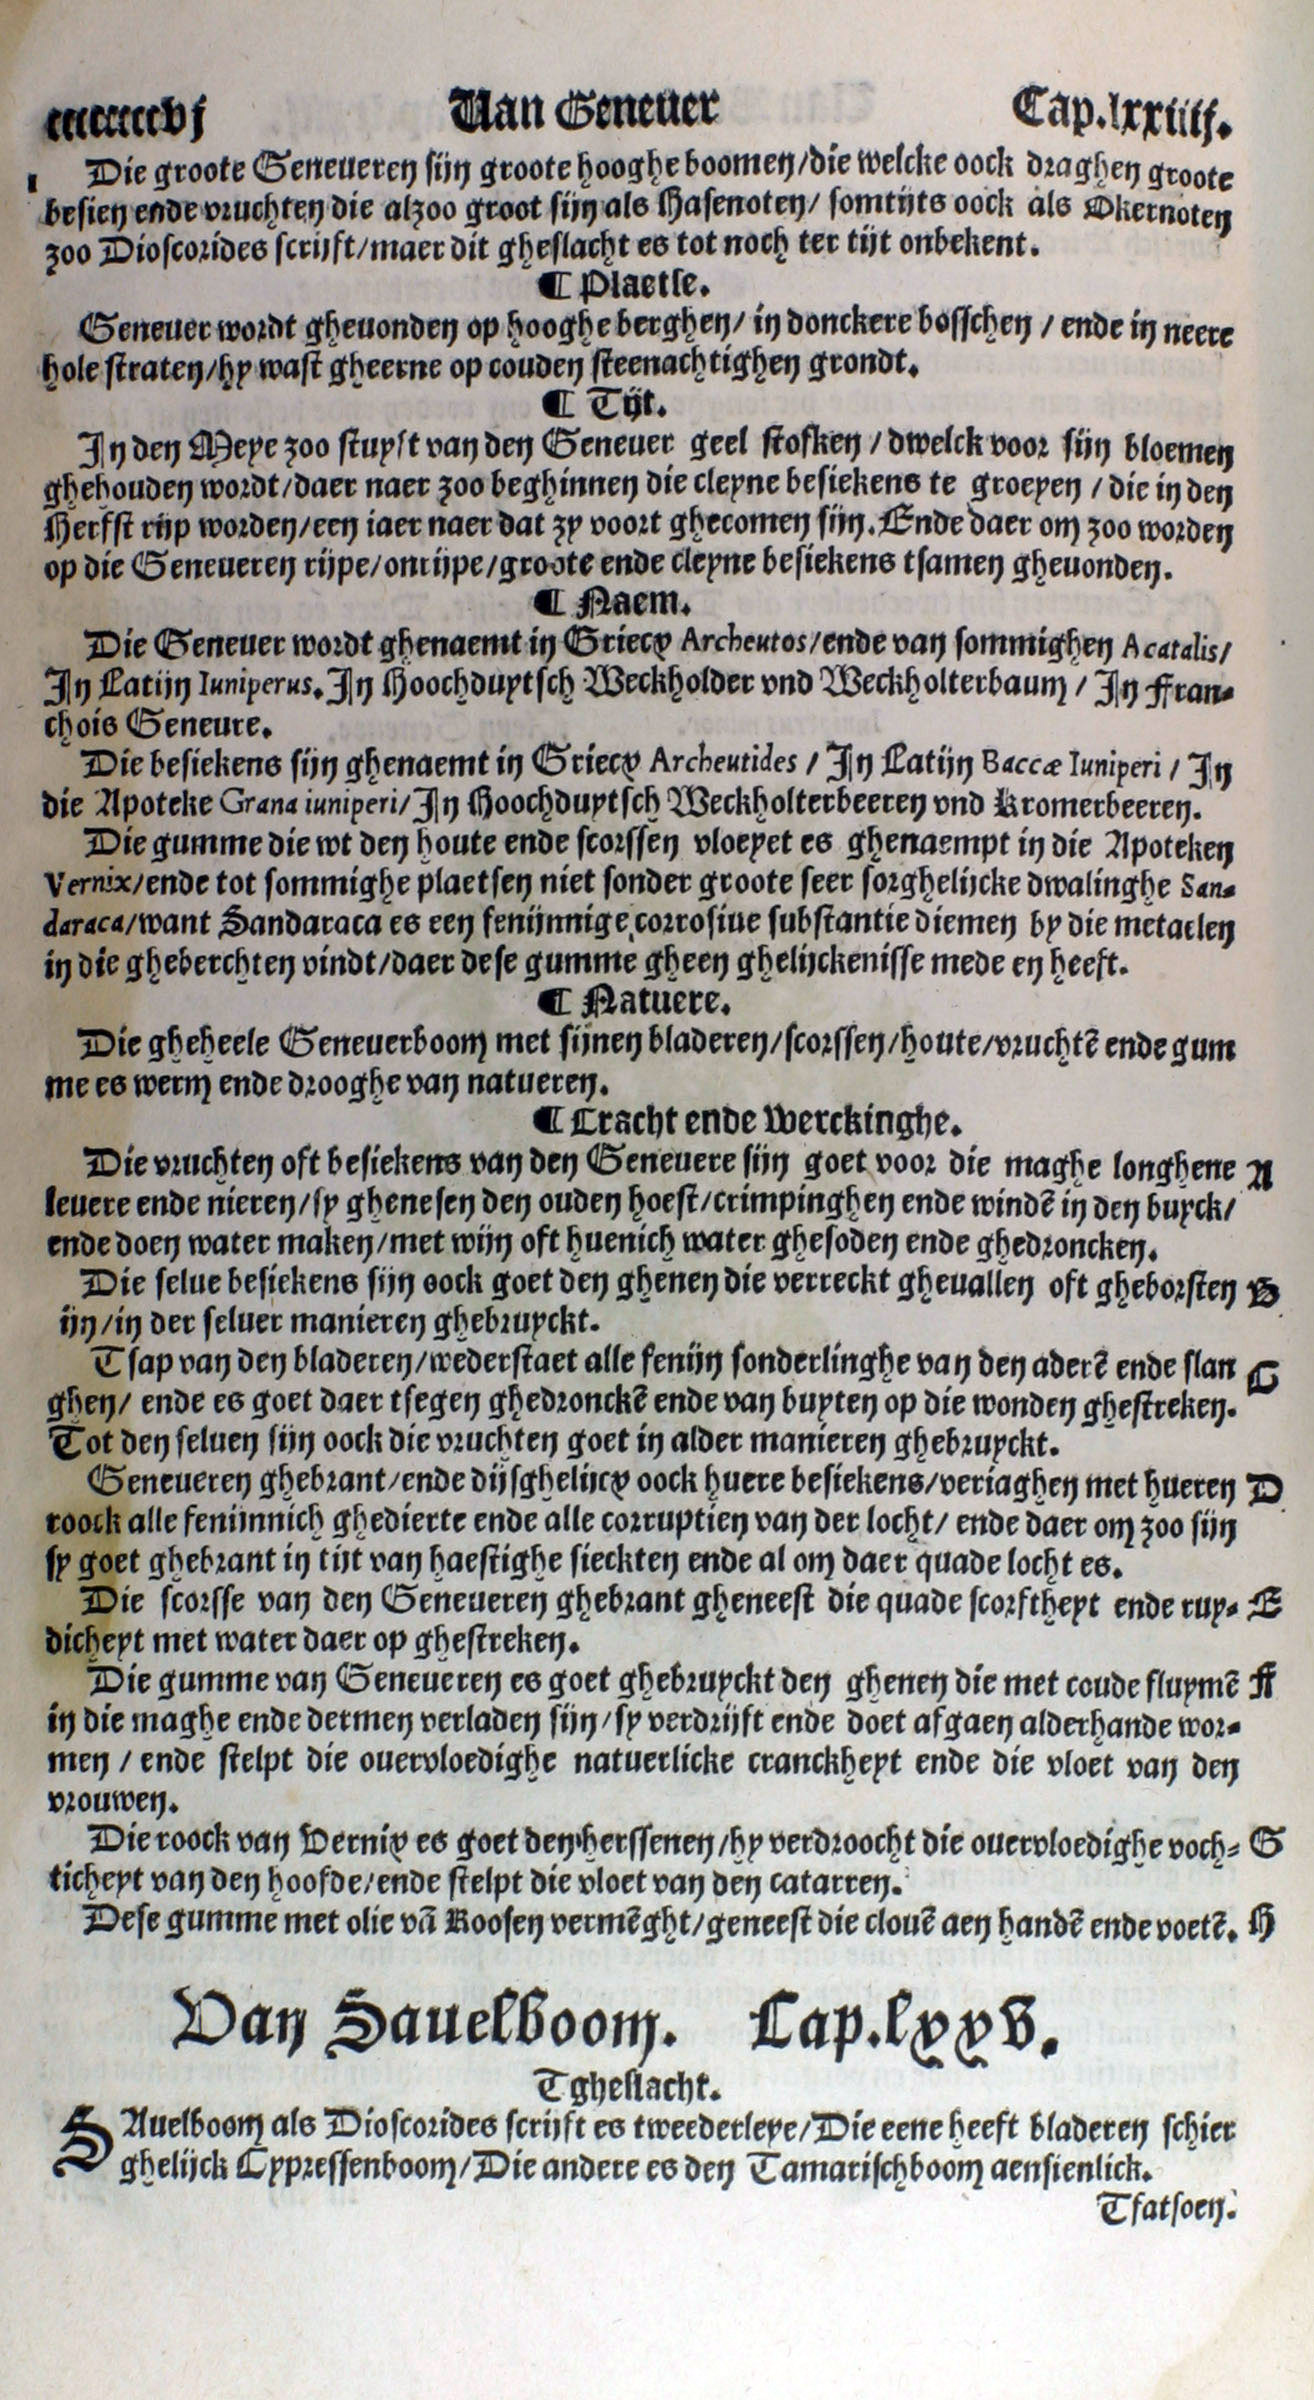 cccccccvj Uan Geneuer Cap.lxxiiij.
Die groote Geneueren sijn groote hooghe boomen/die welcke oock draghen groote
besien ende vruchten die alzoo groot sijn als Hasenoten/ somtijts oock als Okernoten
zoo Dioscorides scrijft/maer dit gheslacht es tot noch ter tijt onbekent.
¶ Plaetse.
Geneuer wordt gheuonden op hooghe berghen/ in donckere bosschen / ende in neere
hole straten/hy wast gheerne op couden steenachtighen grondt.
¶ Tijt.
In den Meye zoo stuyft van den Geneuer geel stofken / dwelck voor sijn bloemen
ghehouden wordt/daer naer zoo beghinnen die cleyne besiekens te groeyen / die in den
Herfst rijp worden/een iaer naer dat zy voort ghecomen sijn. Ende daer om zoo worden
op die Geneueren rijpe/onrijpe/groote ende cleyne besiekens tsamen gheuonden.
¶ Naem.
Die Geneuer wordt ghenaemt in Griecx Archeutos/ende van sommighen Acatalis/
In Latijn Iuniperus. In Hoochduytsch Weckholder vnd Weckholterbaum / In Fran-
chois Geneure.
Die besiekens sijn ghenaemt in Griecx Archeutides / In Latijn Baccæ Iuniperi / In
die Apoteke Grana iuniperi/ In Hoochduytsch Weckholterbeeren vnd Kromerbeeren.
Die gumme die wt den houte ende scorssen vloeyet es ghenaempt in die Apoteken
Vernix/ende tot sommighe plaetsen niet sonder groote seer sorghelijcke dwalinghe San-
daraca/want Sandaraca es een fenijnnige corrosiue substantie diemen by die metaelen
in die gheberchten vindt/daer dese gumme gheen ghelijckenisse mede en heeft.
¶ Natuere.
Die gheheele Geneuerboom met sijnen bladeren/scorssen/houte/vruchtē ende gum
me es werm ende drooghe van natueren.
¶ Cracht ende Werckinghe.
Die vruchten oft besiekens van den Geneuere sijn goet voor die maghe longhene A
leuere ende nieren/sy ghenesen den ouden hoest/crimpinghen ende windē in den buyck/
ende doen water maken/met wijn oft huenich water ghesoden ende ghedroncken.
Die selue besiekens sijn oock goet den ghenen die verreckt gheuallen oft gheborsten B
ijn/in der seluer manieren ghebruyckt.
Tsap van den bladeren/wederstaet alle fenijn sonderlinghe van den aderē ende slan C
ghen/ ende es goet daer tseghen ghedronckē ende van buyten op die wonden ghestreken.
Tot den seluen sijn oock die vruchten goet in alder manieren ghebruyckt.
Geneueren ghebrant/ende dijsghelijcx oock huere besiekens/veriaghen met hueren D
roock alle fenijnnich ghedierte ende alle corruptien van der locht/ ende daer om zoo sijn
sy goet ghebrant in tijt van haestighe sieckten ende al om daer quade locht es.
Die scorsse van den Geneueren ghebrant gheneest die quade scorftheyt ende ruy- E
dicheyt met water daer op ghestreken.
Die gumme van Geneueren es goet ghebruyckt den ghenen die met coude fluymē F
in die maghe ende dermen verladen sijn/sy verdrijft ende doet afgaen alderhande wor-
men / ende stelpt die ouervloedighe natuerlicke cranckheyt ende die vloet van den
vrouwen.
Die roock van Vernix es goet den herssenen/hy verdroocht die ouervloedighe voch- G
ticheyt van den hoofde/ende stelpt die vloet van den catarren.
Dese gumme met olie vā Roosen vermēght/geneest die clouē aen handē ende voetē. H
Van Sauelboom. Cap.lxxv.
Tgheslacht.
SAuelboom als Dioscorides scrijft es tweederleye/Die eene heeft bladeren schier
ghelijck Cypressenboom/Die andere es den Tamarischboom aensienlick.
Tfatsoen.